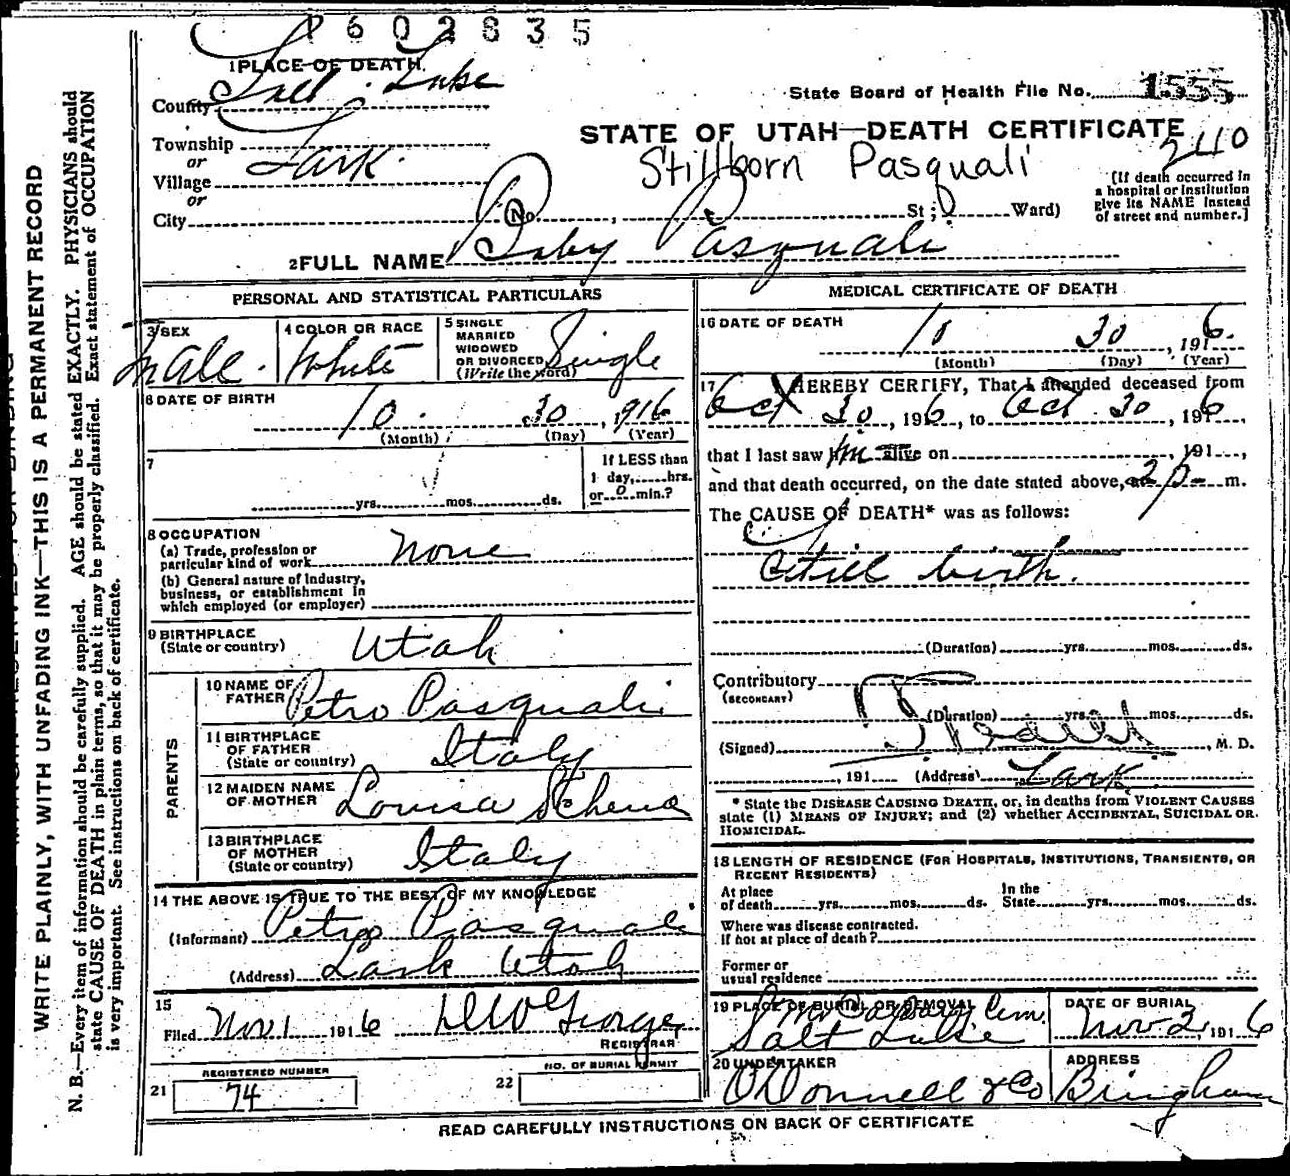 1602835
1 PLACE OF DEATH
County Salt Lake
State Board of Health File No. 1555
STATE OF UTAH—DEATH CERTIFICATE
240
Township
or
Village Lark.
or
City
Stillborn Pasquali
(No. , St ; Ward)
(If death occurred in a hospital or institution give its NAME instead of street and number.]
2 FULL NAME Baby Pasquali
PERSONAL AND STATISTICAL PARTICULARS
3 SEX
Male.
4 COLOR OR RACE
White
5 SINGLE
MARRIED
WIDOWED
OR DIVORCED
(Write the word)
Single
6 DATE OF BIRTH
10. 30, 1916
(Month) (Day) (Year)
7
yrs. mos. ds.
If LESS than
1 day, hrs.
or 0 min.?
8 OCCUPATION
(a) Trade, profession or
particular kind of work None
(b) General nature of Industry,
business, or establishment in
which employed (or employer)
9 BIRTHPLACE
(State or country) Utah
PARENTS
10 NAME OF
FATHER Petro Pasquali
11 BIRTHPLACE
OF FATHER
(State or country) Italy
12 MAIDEN NAME
OF MOTHER Louisa
13 BIRTHPLACE
OF MOTHER
(State or country) Italy
14 THE ABOVE IS TRUE TO THE BEST OF MY KNOWLEDGE
(Informant) Petro Pasquali
(Address) Lark Utah
15
Filed Nov 1 1916 George
REGISTRAR
REGISTERED NUMBER
21 74
NO. OF BURIAL PERMIT
22
MEDICAL CERTIFICATE OF DEATH
16 DATE OF DEATH
10 30, 1916.
(Month) (Day) (Year)
17 I HEREBY CERTIFY, That I attended deceased from
Oct 30, 1916, to Oct 30, 1916,
that I last saw him alive on , 191 ,
and that death occurred, on the date stated above, at 2 p m.
The CAUSE OF DEATH* was as follows:
Still birth.
(Duration) yrs. mos. ds.
Contributory
(SECONDARY)
(Duration) yrs. mos. ds.
(Signed) , M. D.
, 191 (Address) Lark
* State the DISEASE CAUSING DEATH, or, in deaths from VIOLENT CAUSES
state (1) MEANS OF INJURY; and (2) whether ACCIDENTAL, SUICIDAL OR
HOMICIDAL.
18 LENGTH OF RESIDENCE (FOR HOSPITALS, INSTITUTIONS, TRANSIENTS, OR
RECENT RESIDENTS)
At place
of death yrs. mos. ds.
In the
State yrs. mos. ds.
Where was disease contracted.
If not at place of death?
Former or
usual residence
19 PLACE OF BURIAL OR REMOVAL
Mt Calvary Cem.
Salt Lake
DATE OF BURIAL
Nov 2, 1916
20 UNDERTAKER
O'Donnell & Co
ADDRESS
Bingham
READ CAREFULLY INSTRUCTIONS ON BACK OF CERTIFICATE
WRITE PLAINLY, WITH UNFADING INK—THIS IS A PERMANENT RECORD
N. B.—Every item of information should be carefully supplied. AGE should be stated EXACTLY. PHYSICIANS should
state CAUSE OF DEATH in plain terms, so that it may be properly classified. Exact statement of OCCUPATION
is very important. See instructions on back of certificate.